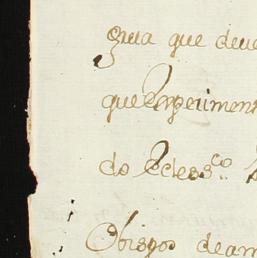 que deve
que experiment
do Ecles.co
Obispos de am